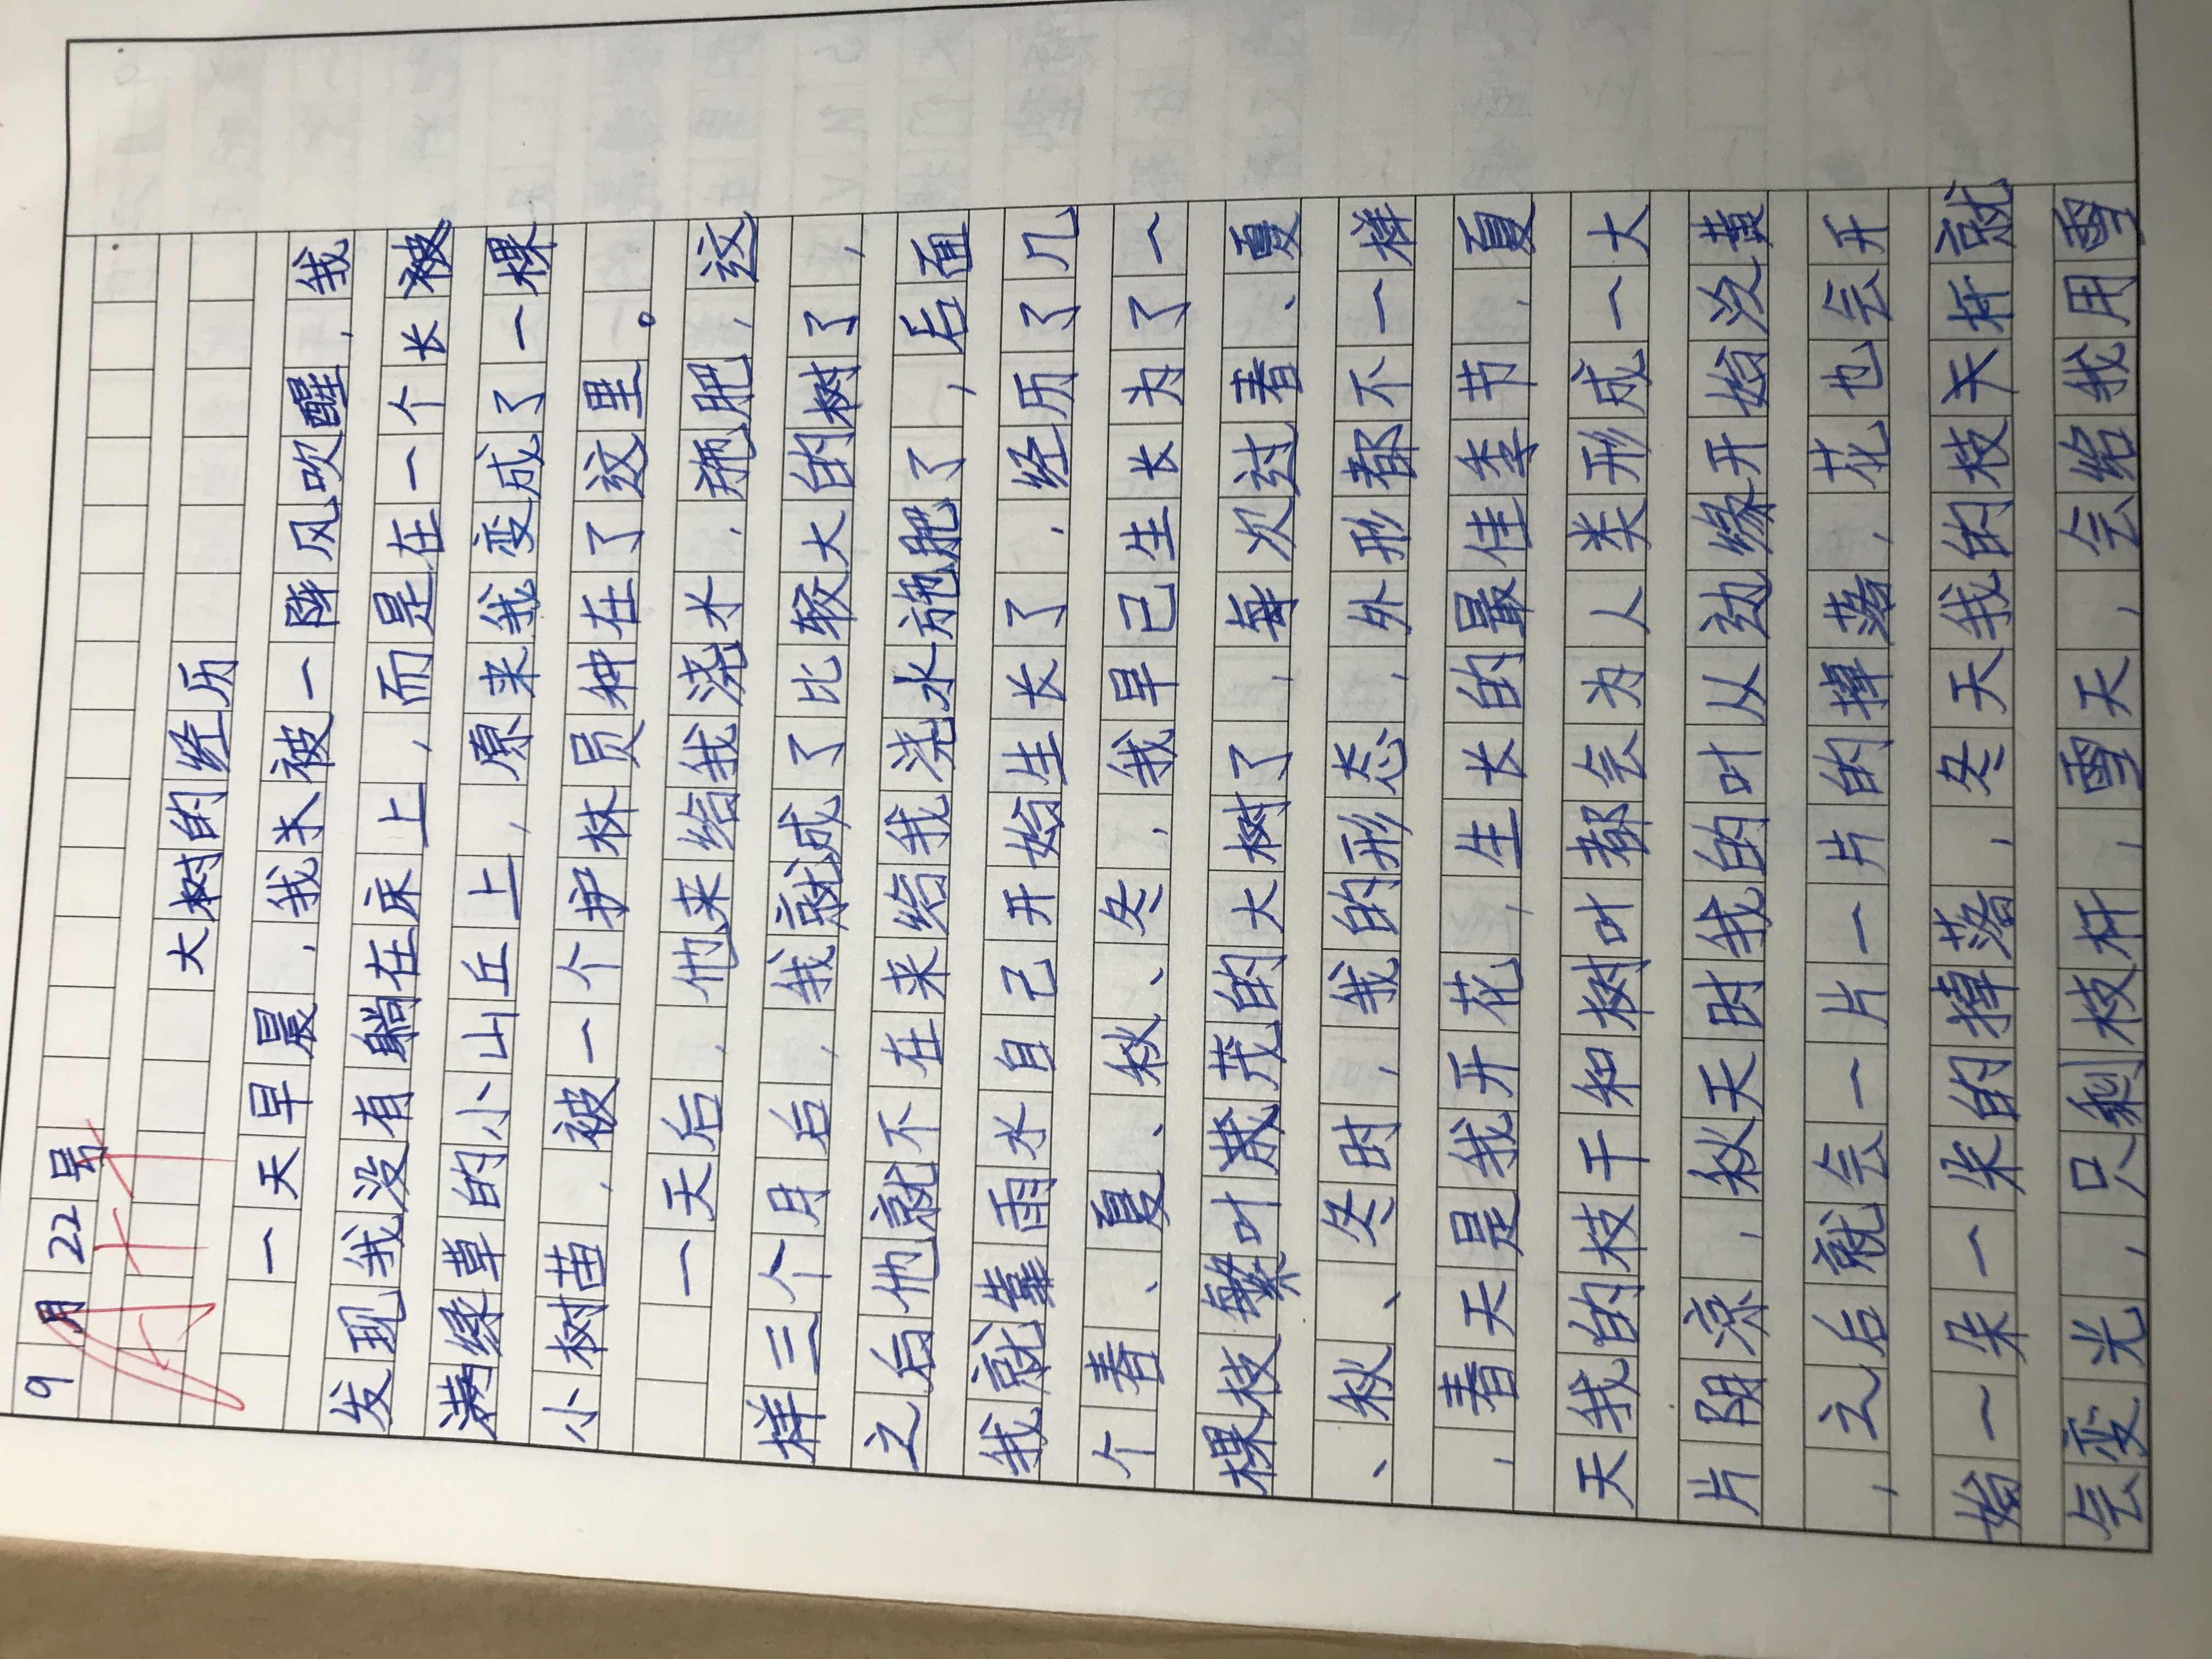 9月22号
A++
大树的经历
一天早晨，我被一阵风吹醒，我
发现我没有躺在床上，而是在一个长
满绿草的小山丘上，原来我变成了一棵
小树苗，被一个护林员种在了这里。
一天后，他来给我浇水，施肥，这
样三个月后，我就成了比较大的树了，
之后他就不在来给我浇水施肥了，后面
我就靠雨水自己开始生长了，经历了几
个春、夏、秋、冬，我早已生长为了一
棵枝繁叶茂的大树了，每次过春、夏
、秋、冬时，我的形态，外形都不一样
，春天是我开花，生长的最佳季节，夏
天我的枝干和树叶都会为人类形成一大
片阴凉，秋天时我的叶从边缘开始泛黄
，之后就会一片一片的掉落，花也会开
始一朵一朵的掉落，冬天我的枝天杆就
会变光，只剩枝杆，雪天，会给我用雪